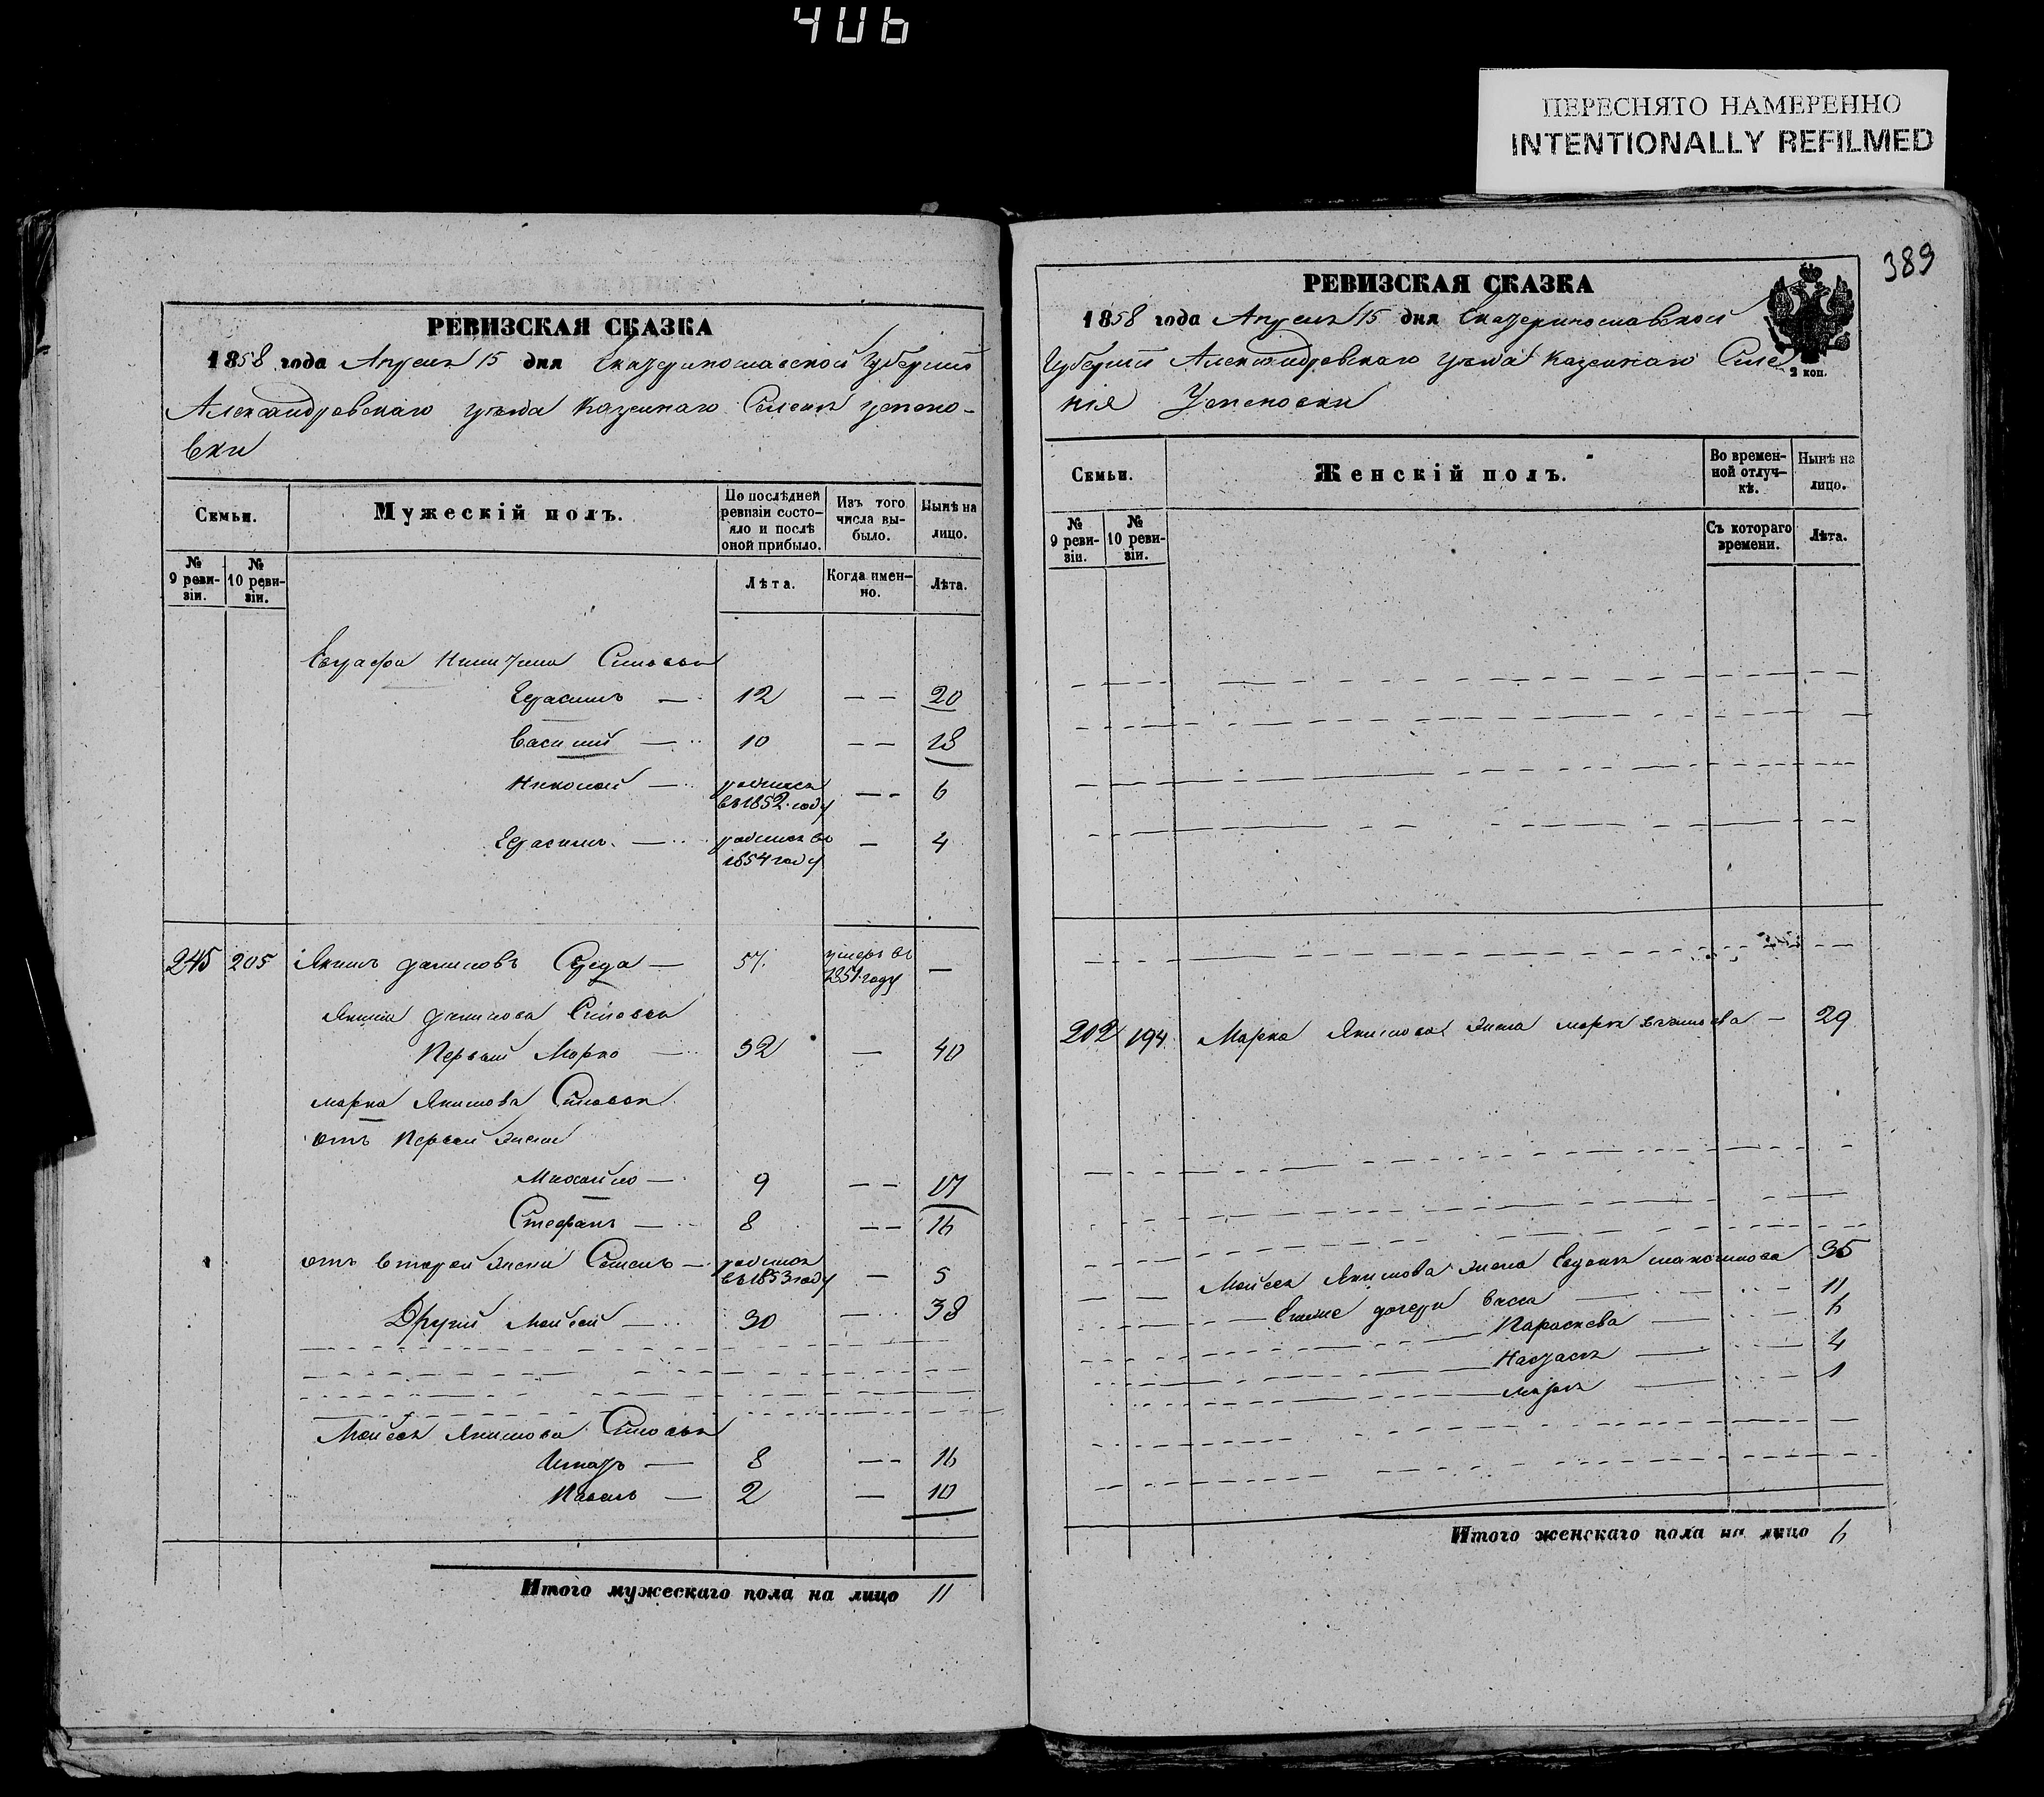 406
ПЕРЕСНЯТО НАМЕРЕННО
INTENTIONALLY REFILMED
РЕВИЗСКАЯ СКАЗКА
1858 года Апреля 15 дня Екатеринославской Губернии
Александровскаго уезда Казеннаго Селения Успено-
вки
Семьи.
Мужескій полъ.
По послѣдней ревизіи состо-яло и послѣ оной прибыло.
Изъ того числа вы-было.
Нынѣ на лицо.
№ 9 реви-зіи.
№ 10 реви-зіи.
Лѣта.
Когда имен-но.
Лѣта.
Никитина Сыновья
Герасимъ — 12 — — 20
Василий — 10 — — 18
Николай — родился въ 1852 году — - 6
Герасимъ — родился въ 1854 году — 4
245 205 Якимъ Даниловъ Середа — 57 умеръ въ 1851 году —
Якима Данилова Сыновья
Первый Марко — 32 — 40
Марка Якимова Сыновья
отъ Первой жены
Михайло — 9 — — 17
Стефанъ — 8 — — 16
отъ второй жены Семенъ — родился въ 1853 году — 5
Другий Моисей — 30 — 38
Моисея Якимова Сыновья
Игнатъ — 8 — - 16
Павелъ — 2 — 10
Итого мужескаго пола на лицо 11
389
РЕВИЗСКАЯ СКАЗКА
1858 года Апреля 15 дня Екатеринославской
Губернии Александровскаго уезда Казеннаго Селе
нія Успеновки
2 коп.
Семьи.
Женскій полъ.
Во времен-ной отлуч-кѣ.
Нынѣ на лицо.
№ 9 реви-зіи.
№ 10 реви-зіи.
Съ котораго времени.
Лѣта.
202 194 Марка Якимова жена Марья — 29
Моисея Якимова жена Евдокия 35
дочери 11
Параскева — 6
Настасья — 4
Марья — 1
Итого женскаго пола на лицо 6